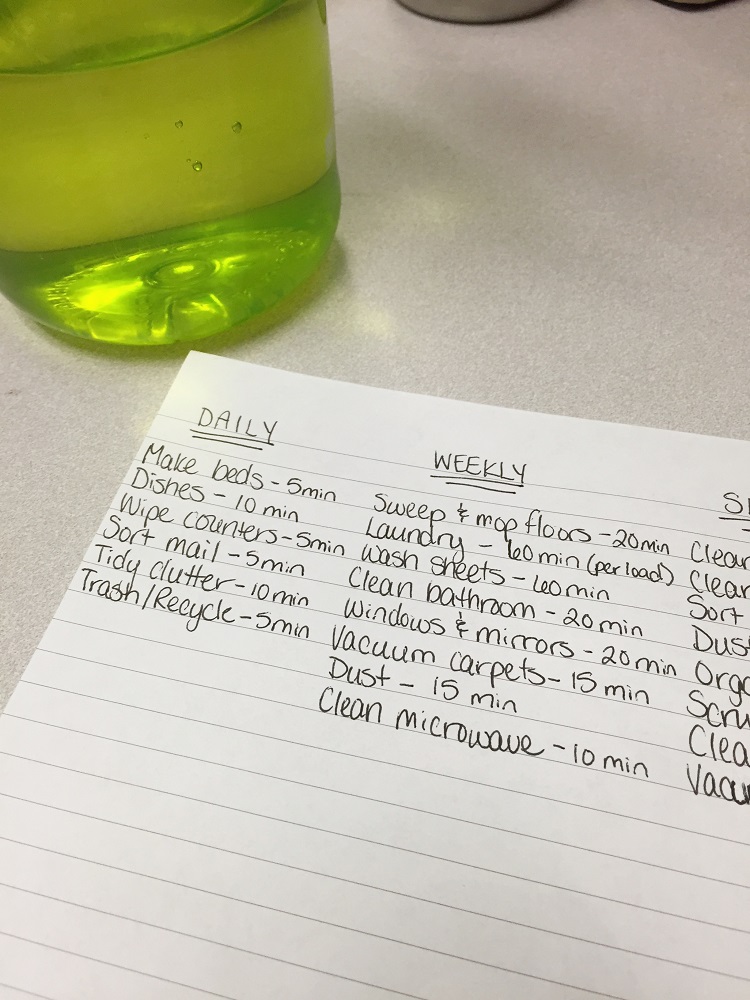 DAILY
Make beds - 5min
Dishes - 10 min
Wipe counters - 5min
Sort mail - 5min
Tidy clutter - 10min
Trash/Recycle - 5min
WEEKLY
Sweep & mop floors - 20min
Laundry - 60min (per load)
Wash sheets - 60min
Clean bathroom - 20 min
Windows & mirrors - 20min
Vacuum carpets - 15 min
Dust - 15 min
Clean microwave - 10 min
Sort
Dust